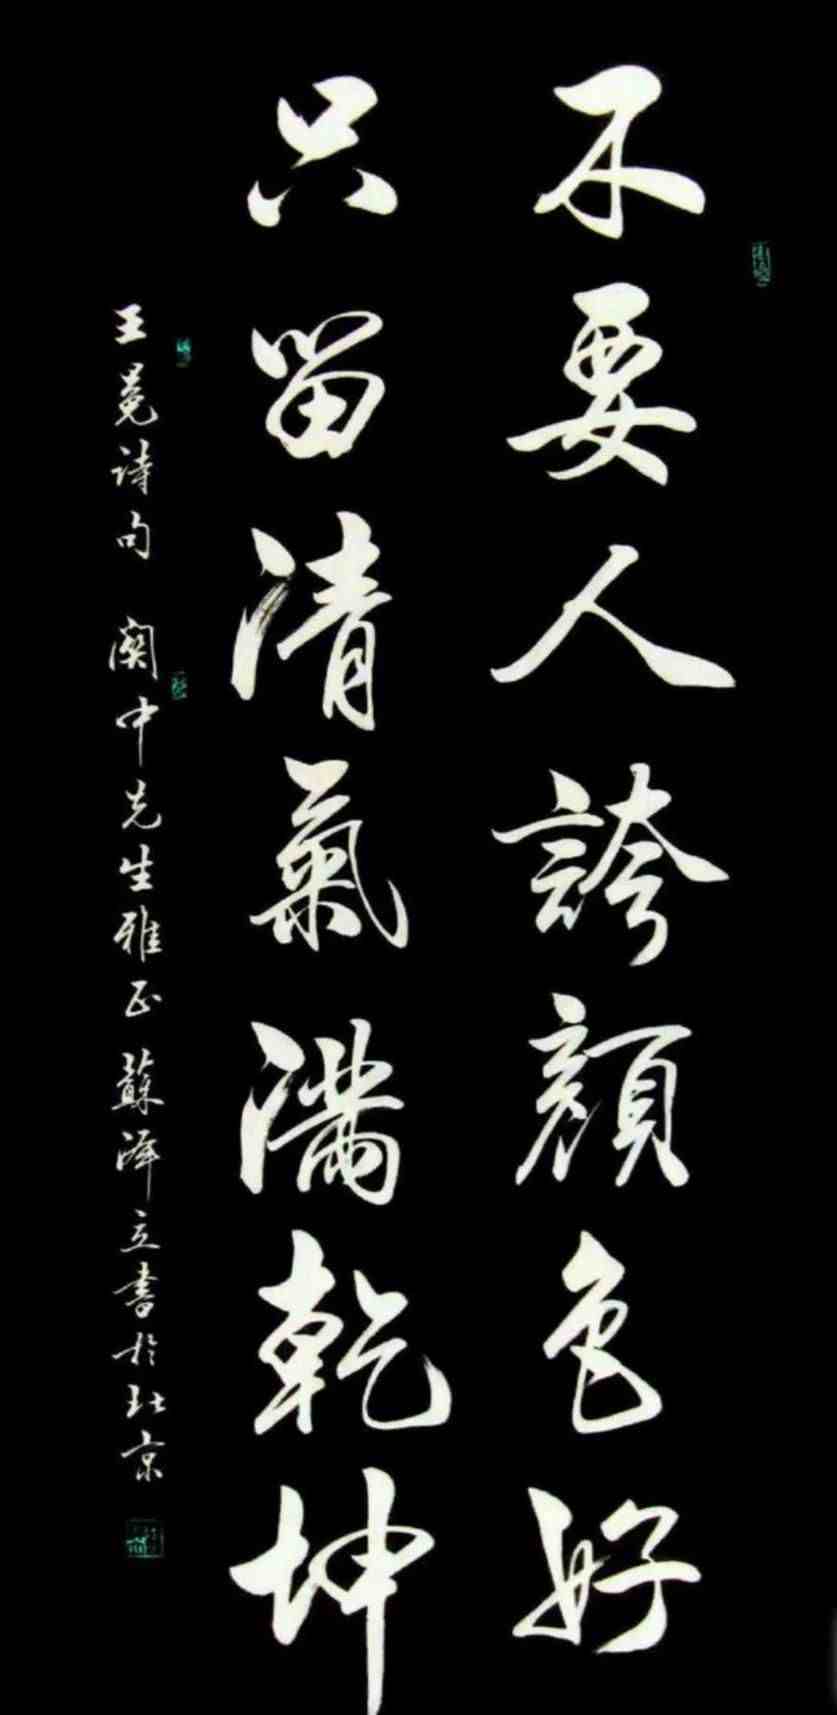 不要人誇顔色好
只留清氣滿乾坤
王冕詩句 關中先生雅正 蘇澤立書於北京